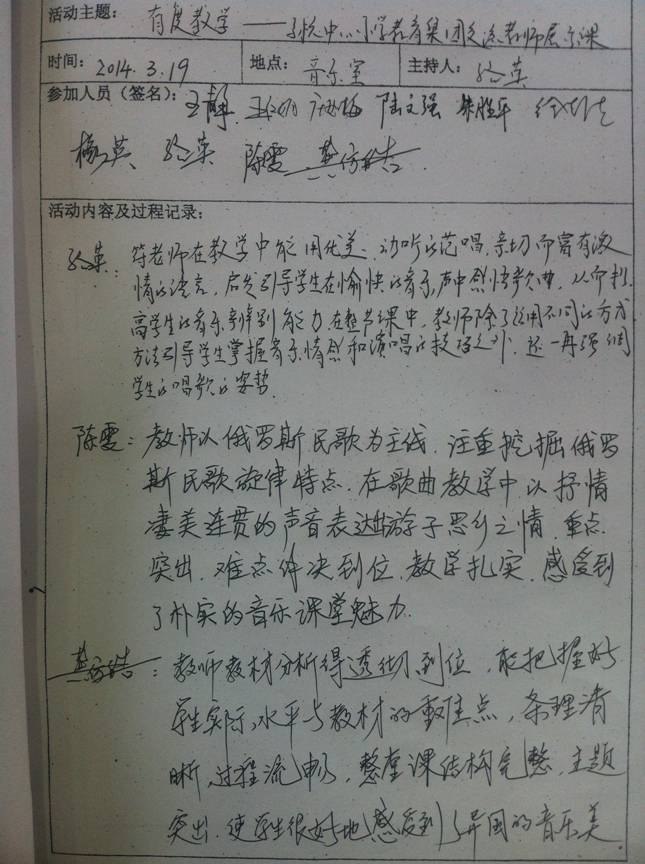 活动主题： 有度教学 —— 中心小学教育集团交流教师展示课
时间： 2014.3.19 地点： 音乐室 主持人： 英
参加人员（签名）： 王静 陆文强
杨英 英 陈雯
活动内容及过程记录：
英： 符老师在教学中能用优美、动听的范唱，亲切而富有激
情的语言，启发引导学生在愉快的音乐声中感悟歌曲，从而提
高学生的音乐辨别能力在整节课中，教师除了运用不同的方式
方法引导学生掌握音乐情感和演唱的技巧之外，还一再强调
学生的唱歌的姿势
陈雯：教师以俄罗斯民歌为主线，注重挖掘俄罗
斯民歌旋律特点．在歌曲教学中以抒情
凄美连贯的声音表达出游子思乡之情．重点
突出．难点件决到位．教学扎实．感受到
了朴实的音乐课堂魅力．
：教师教材分析得透彻到位，能把握好
学生实际水平与教材的重难点，条理清
晰，过程流畅，整堂课结构完整，主题
突出．使学生很好地感受到了异国的音乐美